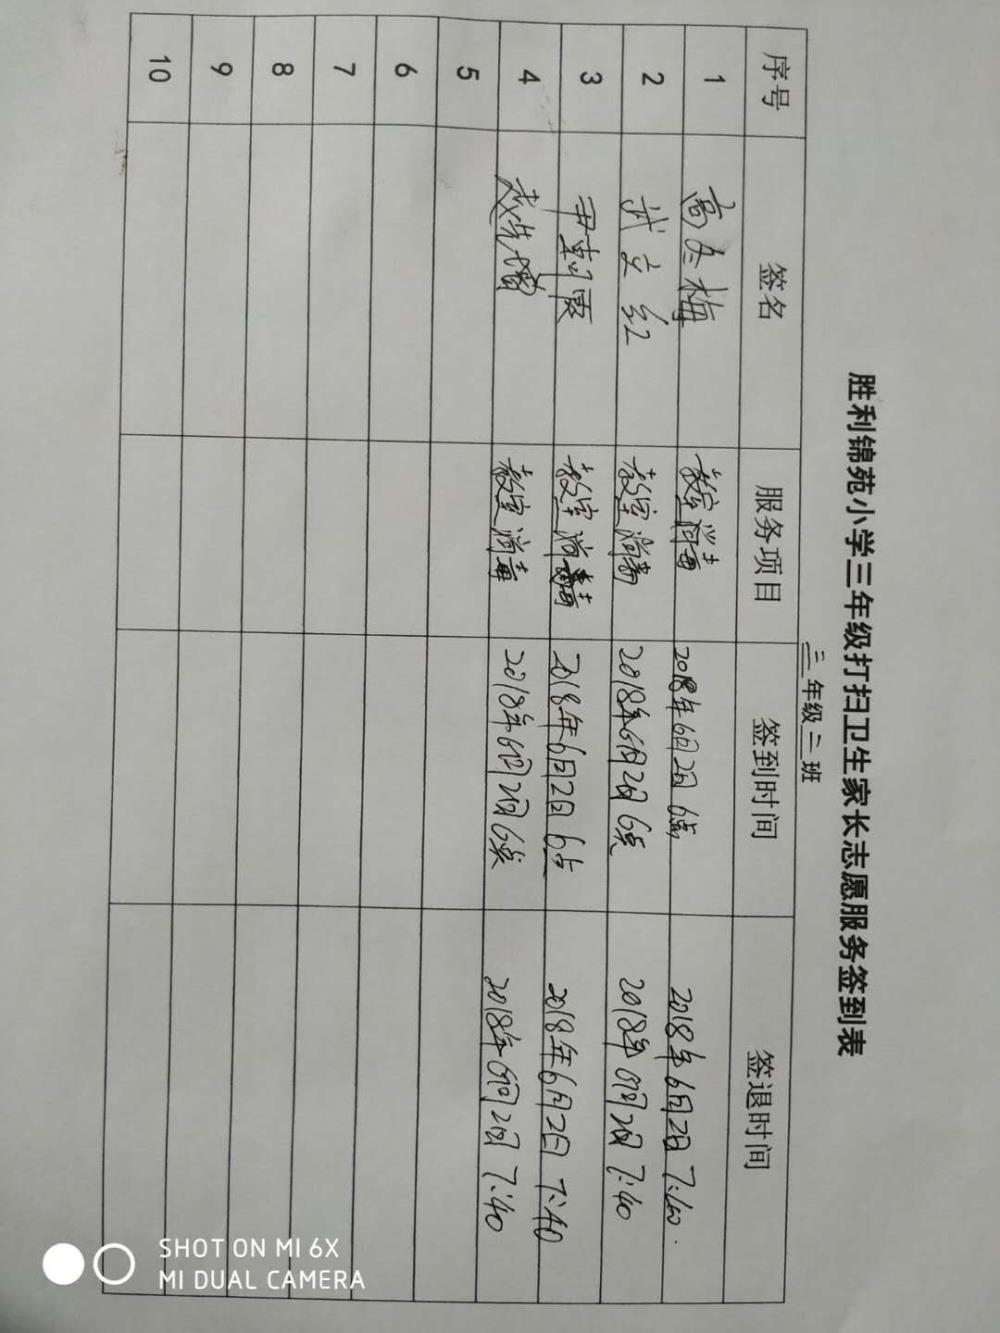 胜利锦苑小学三年级打扫卫生家长志愿服务签到表
三年级二班
序号 签名 服务项目 签到时间 签退时间
1 高冬梅 教室消毒 2018年6月2日 6点 2018年6月2日 7:40
2 武立红 教室消毒 2018年6月2日 6点 2018年6月2日 7:40
3 尹莉霞 教室消毒 2018年6月2日 6点 2018年6月2日 7:40
4 赵先增 教室消毒 2018年6月2日 6点 2018年6月2日 7:40
5
6
7
8
9
10
SHOT ON MI 6X
MI DUAL CAMERA